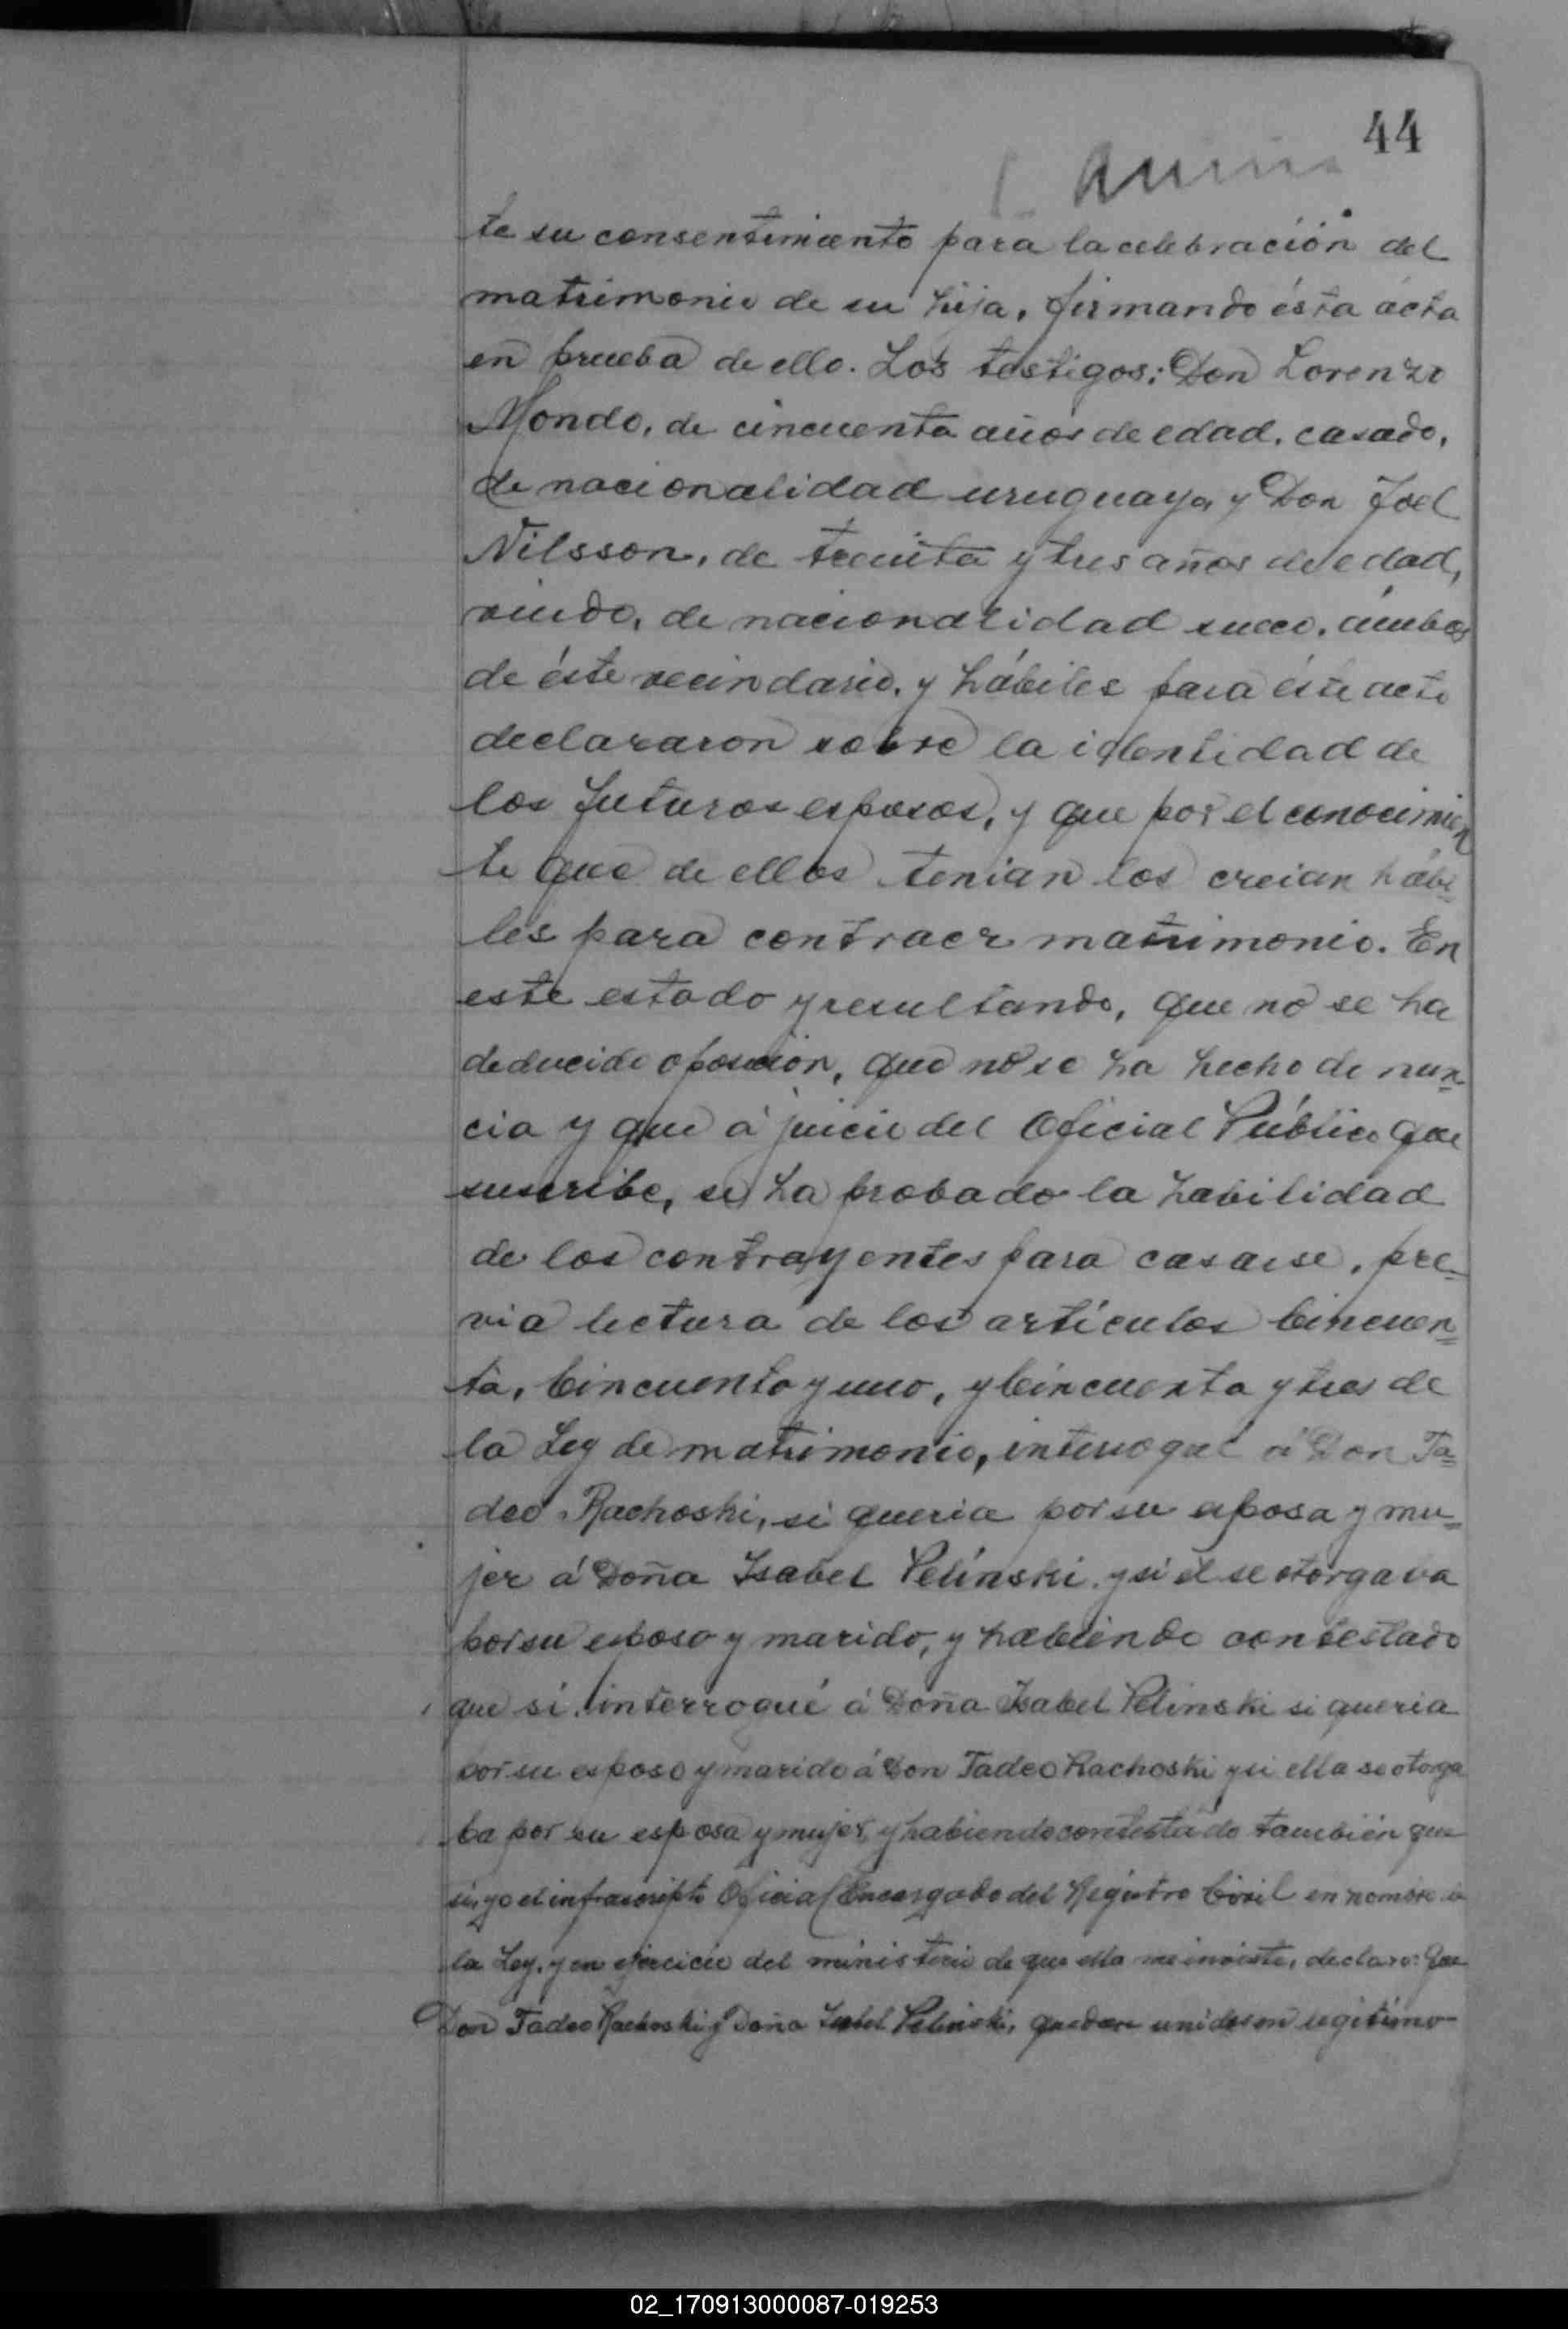 44
te su consentimiento para la celebración del
matrimonio de su hija, firmando ésta acta
en prueba de ello. Los testigos: Don Lorenzo
Mondo, de cincuenta años de edad, casado,
de nacionalidad uruguaya, y Don Joel
Nilsson, de treinta y tres años de edad,
viudo, de nacionalidad sueco, ámbos
de éste vecindario, y hábiles para éste acto
declararon sobre la identidad de
los futuros esposos, y que por el conocimien
to que de ellos tenian los creian hábi-
les para contraer matrimonio. En
este estado y resultando, que no se ha
deducido oposicion, que no se ha hecho denun-
cia y que á juicio del Oficial Público que
suscribe, se ha probado la habilidad
de los contrayentes para casarse, pre-
via lectura de los artículos Cincuen=
ta, Cincuenta y uno, y Cincuenta y tres de
la Ley de matrimonio, interrogué á Don Ta=
deo Rachoski, si queria por su esposa y mu=
jer á Doña Isabel Pelinski y si él se otorgava
por su esposo y marido, y habiendo contestado
que sí, interrogué á Doña Isabel Pelinski si queria
por su esposo y marido á Don Tadeo Rachoski y si ella se otorga
ba por su esposa y mujer, y habiendo contestado también que
sí, yo el infrascripto Oficial Encargado del Registro Civil en nombre de
la Ley, y en ejercicio del ministerio de que ella me inviste, declaro: Que
Don Tadeo Rachoski y Doña Isabel Pelinski, quedan unidos en legítimo
02_170913000087-019253